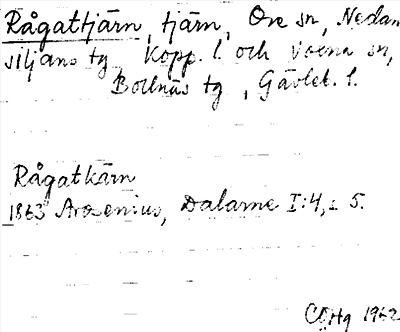 Rågattjärn, tjärn, Ore sn, Nedan
siljans tg Kopp. l. och Voxna sn,
Bollnäs tg, Gävleb. l.
Rågatkärn
1863 Arosenius, Dalarne I:4, s 5.
CÖHg 1962